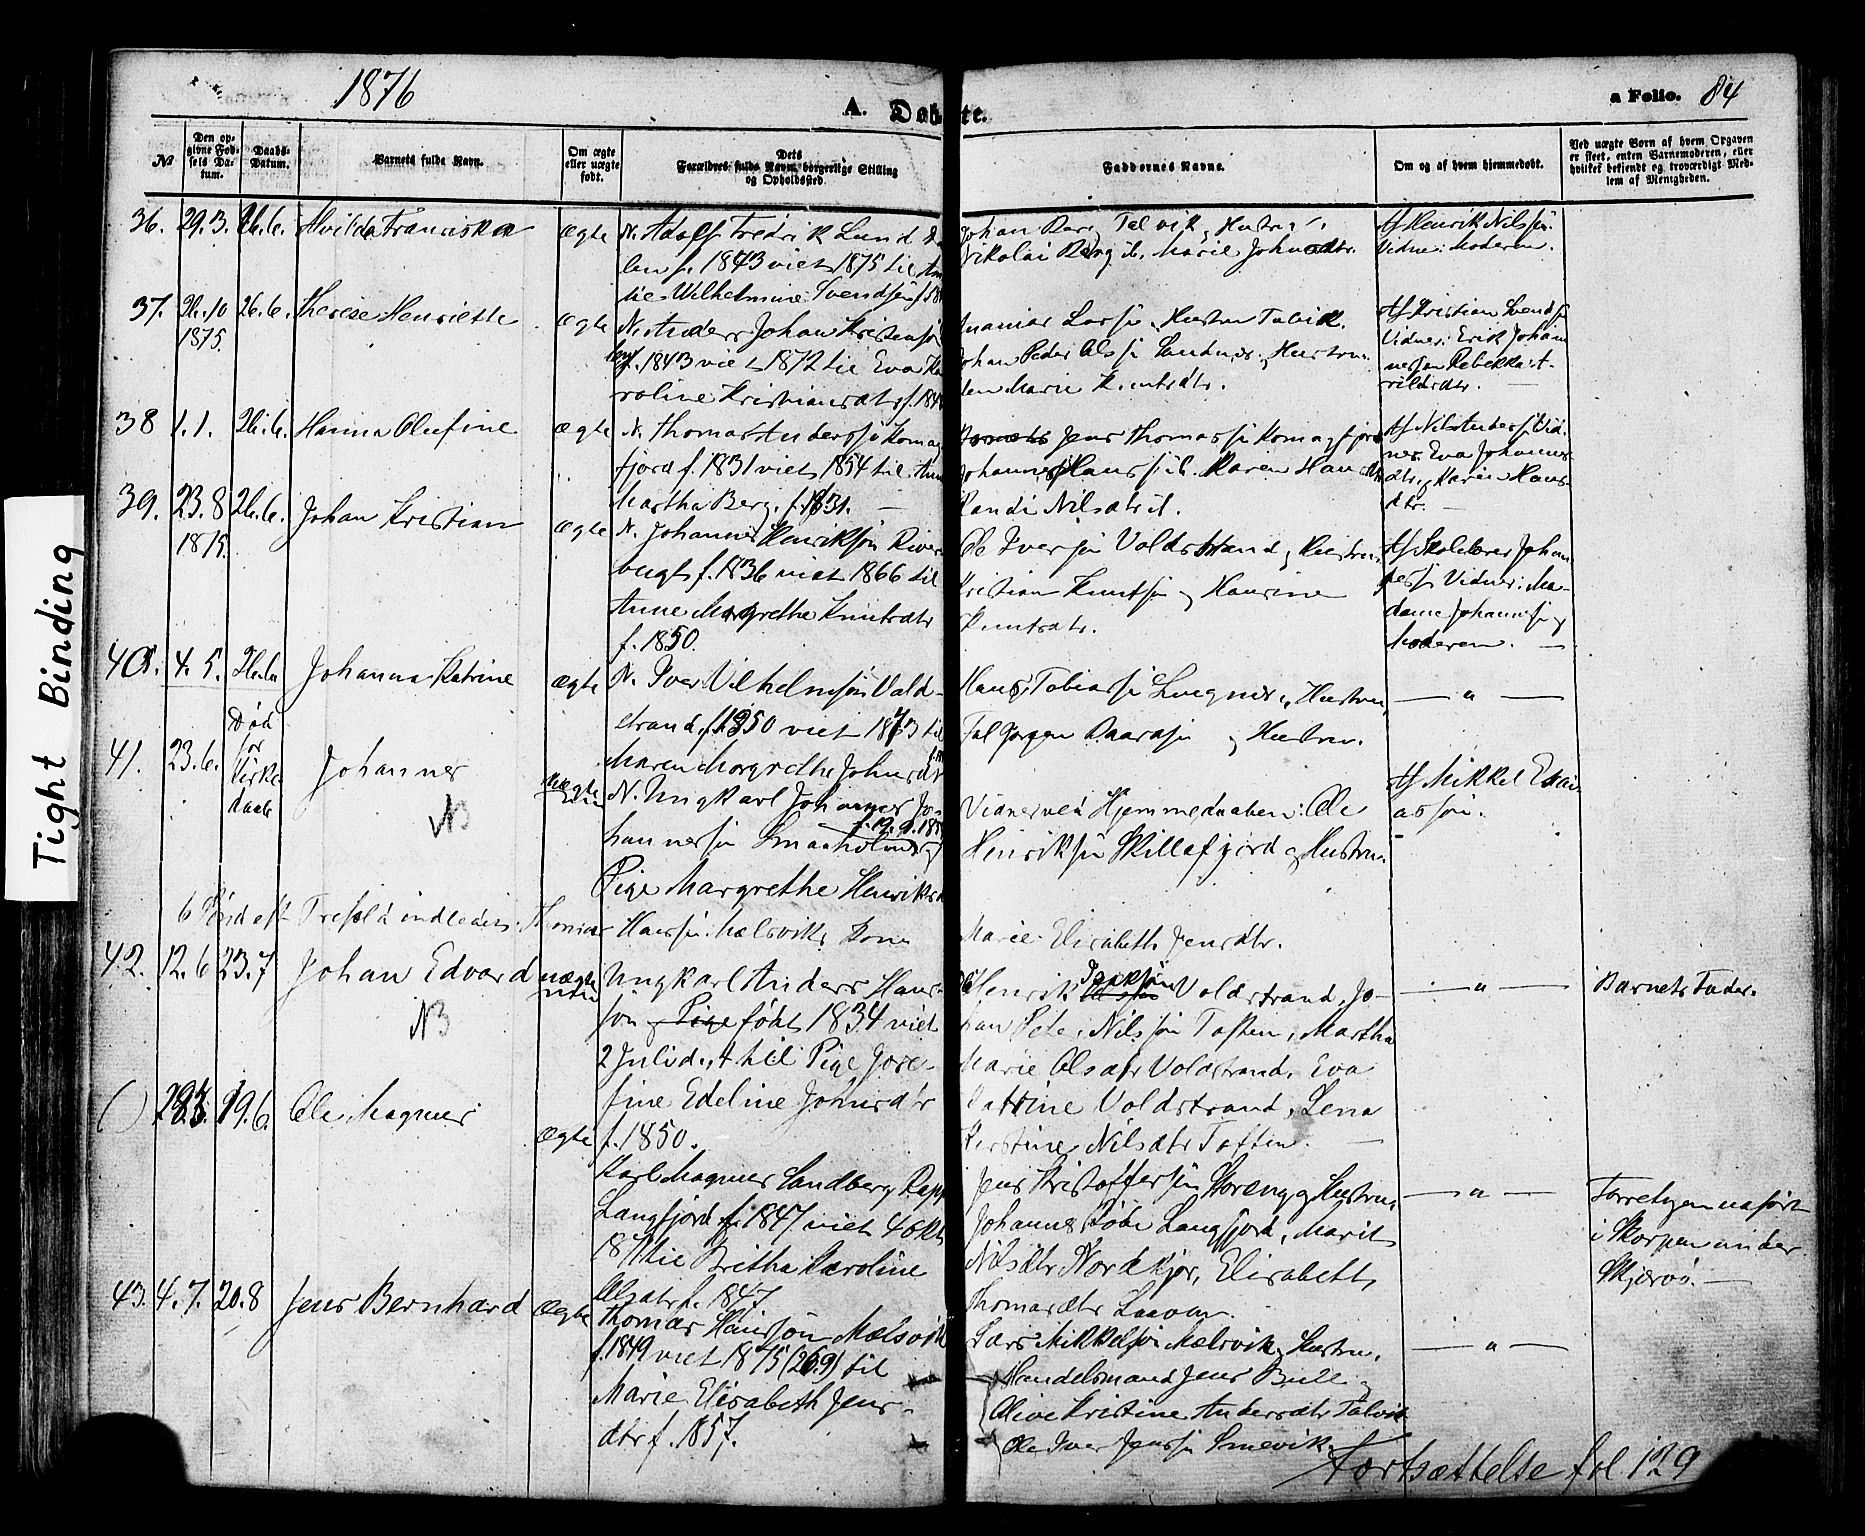 1876
A. Døbte.
a Folio. 84
Tight Binding
No
Den opgivne Fødsels Datum.
Daabs-Datum.
Barnets fulde Navn.
Om ægte eller uægte født.
Dets Forældres fulde Navn, borgerlige Stilling og Opholdssted.
Faddernes Navne.
Om og af hvem hjemmedøbt.
Ved uægte Børn af hvem Opgaven er skeet, enten Barnemoderen, eller hvilket bekjendt og troværdigt Medlem af Menigheden.
36. 29.3. 26.6. Alvilda Franciska ægte N. Adolf Fredrik Lund
len f. 1843 viet 1875 til
lie Wilhelmine Svendsen
Johan Berg Talvik, Hustru
Nikolai Berg ib. Marie Johnsdtr.
Af Henrik Nilssøn
Vidne: Moderen.
37. 26.10 1875. 26.6. Therese Henriette ægte N. Anders Johan Kristensøn
f. 1843 viet 1872 til Eva Ka
roline Kristiansdtr f. 184
Larss. Hustru Talvik.
Johan Peder Olss. Sandnes, Hustru.
Marie Knutsdtr.
Af Kristian Svends.
Vidner: Erik Johan
nessen Rebekka A-
rildsdtr.
38 1.1. 26.6. Hanna Olufine ægte N. Thomas Anderss. Komag
fjord f. 1831 viet 1854 til Ann
Martha Berg. f. 1831.
Jens Thomass. Komagfjord
Johannes Hanss. ib. Karen Hansdtr
Randi Nilsdtr ib.
Af Nils Anderss. Vid-
ner. Eva Johannes
dtr. og Karen Hans-
dtr.
39. 23.8 1875. 26.6. Johan Kristian ægte N. Johannes Henriksøn River
bugt f. 1836 viet 1866 til
Anne Margrethe Knutsdtr
f. 1850.
Ole Iversøn Voldstrand og Hustru,
Kristian Knutsøn og Hansine
Knutsdtr.
Af Skolelærer Johan
ness. Vidner: Ma-
dame Johanness. og
Moderen.
40. 4.5. 26.6 Johanna Katrine ægte N. Iver Vilhelmsøn Vold-
strand, f. 1850 viet 1873 til
Maren Margrethe Johnsdtr
Hans Tobiass. Hustru,
Jørgen Hustru.
— " —
41. 23.6. Død før Kirke daab Johannes uægte N. Ungkarl Johannes Jo-
NB
hannessøn Smaaholmen og
Pige Margrethe Henriksd
Vidner ved Hjemmedaaben: Ole
Henriksøn Skillefjord og Hustru.
Af Mikkel Esai
assøn.
6 Sønd eft Trefold indledes: Thomas Hanssøn Mælsviks Kone Marie Elisabeth Jensdtr.
42. 12.6 23.7 Johan Edvard uægte Ungkarl Anders Hans-
NB
søn født 1834 viet
2 Juli d.A. til Pige Jose-
fine Edeline Johnsdtr
f. 1850.
Henrik Isaksøn Voldstrand, Jo-
han Peter Nilssøn Toften, Martha
Marie Olsdtr Voldstrand, Eva
Katrine Voldstrand, Lena
Kirstine Nilsdtr Toften.
— " —
Barnets Fader.
( ) 19.6. Ole Magnus ægte
Karl Magnus Sandberg
Langfjord f. 1847 viet 4 okt
187 til Britha Karoline
Olsdtr f. 1847.
Jens Kristoffersøn Storeng og Hustru,
Johannes Langfjord, Marit
Nilsdtr Nordkjos, Elisabeth
Thomasdtr
— " —
Forretningen udført
i Skorpen under
Skjervø.
43. 4.7. 20.8 Jens Bernhard ægte
Thomas Hanssøn Mælsvik
f. 1849 viet 1875 (26.9) til
Marie Elisabeth Jens-
dtr f. 1857.
Lars Mikkelsøn Mælsvik, Hustru,
Handelsmand Jens Bull og
Olive Kristine Andersdtr Talvik
Ole Iver Jenss. Smevik.
— " —
Fortsættelse fol. 129